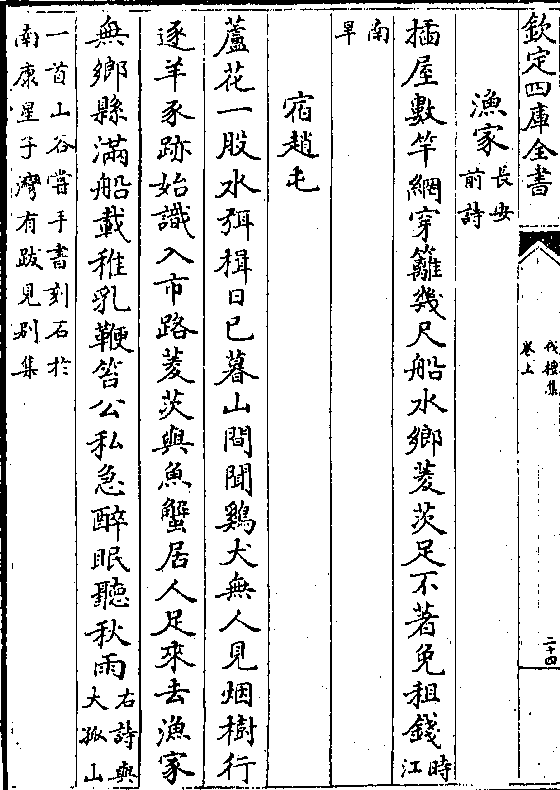 欽定四庫全書
伐檀集
卷上
二十四
漁家長安
前詩
插屋數竿網穿籬幾尺船水鄉菱茨足不著免租錢時
江
南
旱
宿趙屯
蘆花一股水弭楫日已暮山間聞鷄犬無人見烟樹行
逐羊豕跡始識入市路菱茨與魚蟹居人足來去漁家
無鄉縣滿船載稚乳鞭笞公私急醉眠聽秋雨右詩與
大孤山
一首山谷嘗手書刻石於
南康星子灣有跋見别集